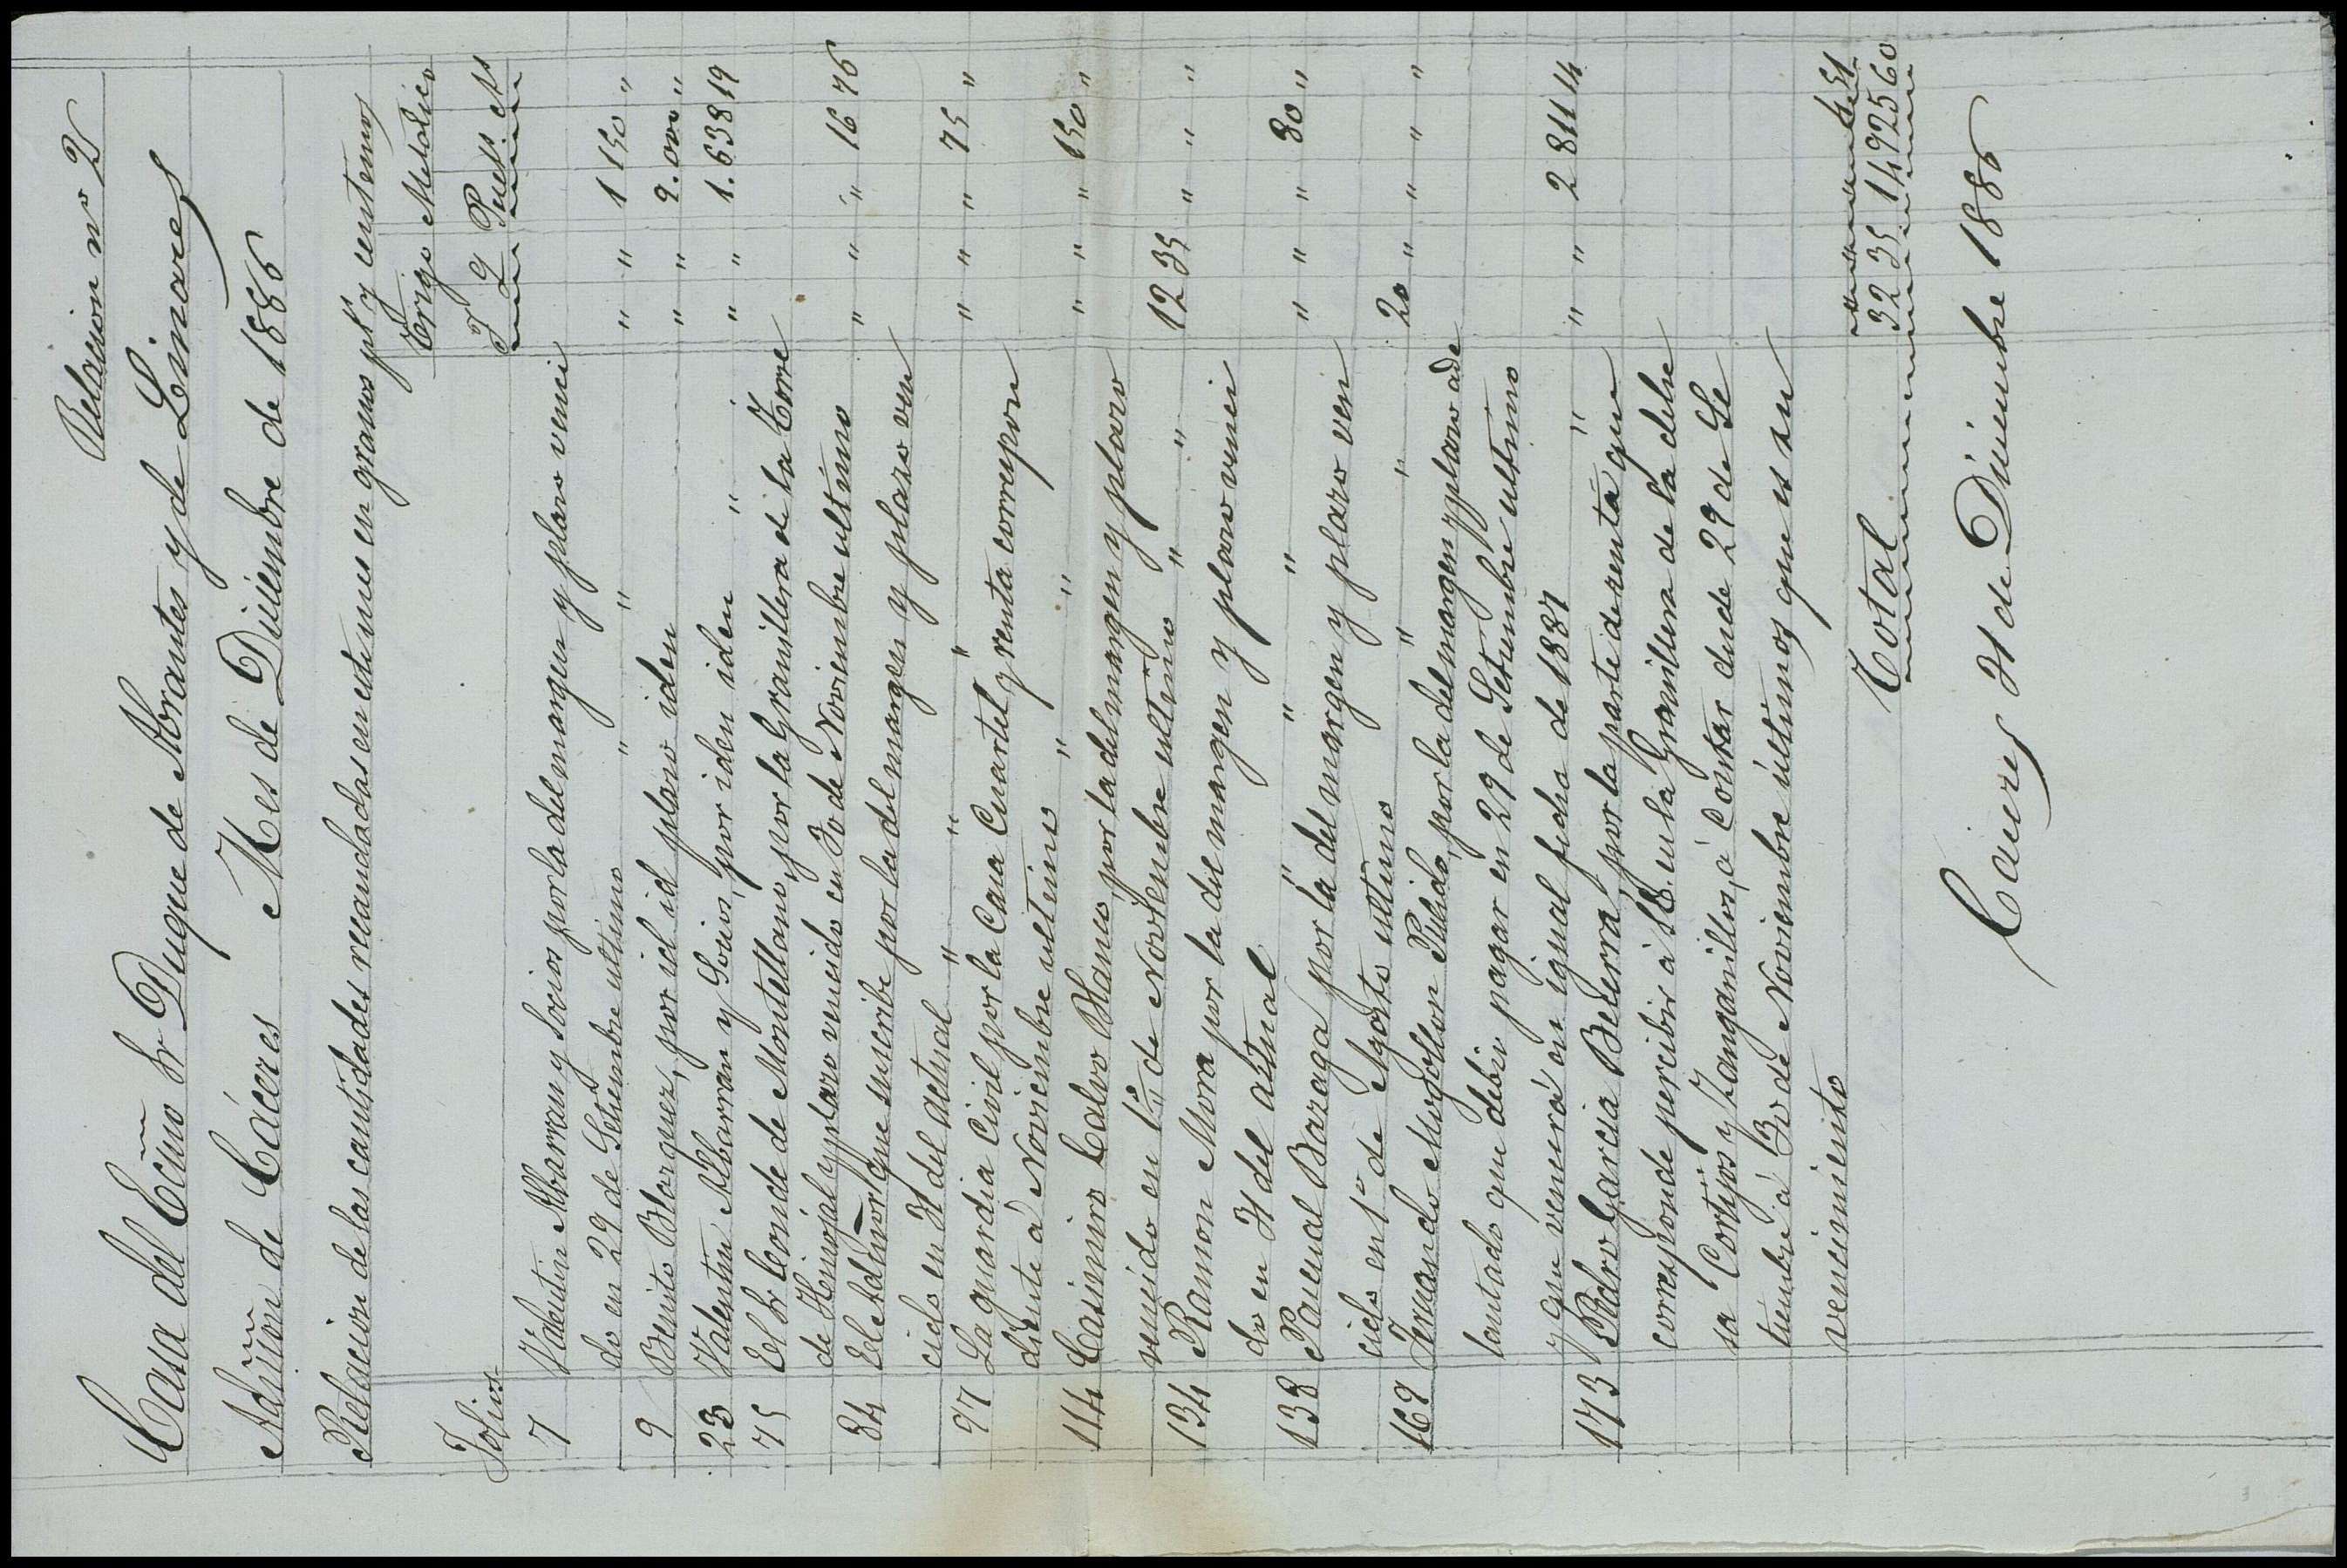 Relacion nº 2
Casa del Ecmo Sr Duque de Abrantes y de Linares
Admon de Cáceres Mes de Diciembre de 1886
Relacion de las cantidades recaudadas en este mes en granos pts y centemos
Trigo Metalico
Folios F q Pests cts
7 Valentin Albarran y Socios por la del margen y plazo venci
do en 29 de Setiembre ultimo " " " " 1 150 "
9 Benito Blazquez, por id id plazo iden " " 9.000 "
23 Valentin Albarran y Socios, por iden iden " " " " 1.638 19
75 El Sr Conde de Montellano, por la Gramillera de la Torre
de Hinojal y plazo vencido en 30 de Noviembre ultimo " " " 16 76
84 El Admor que suscribe por la del margen y plazo ven
cido en 31 del actual " " " " " " 75 "
97 La guardia Civil por la Casa Cuartel y renta correspon
diente á Noviembre ultimo " " " " " 150 "
114 Casimiro Calvo Blanco, por la del margen y plazo
vencido en 1º de Noviembre ultimo " " 12 35 " " "
134 Ramon Mora por la del margen y plazo venci
do en 31 del actual " " " " " " 80 "
138 Pascual Bazaga por la del margen y plazo ven
cido en 1º de Agosto ultimo " " 20 " " " "
169 Fernando Mogollon Pulido, por la del margen y plazo ade
lantado que debia pagar en 29 de Setiembre ultimo
y que vencerá en igual fecha de 1887 " " " 2 811 14
173 Pedro Garcia Becerra, por la parte de renta que
corresponde percibir á S.E. en la Gramillera de la dehe
sa Cortijos y Zanganillos, á contar desde 29 de Se
tiembre á 30 de Noviembre últimos que es su
vencimiento " " " 4 51
Total 32 35 14925 60
Caceres 31 de Diciembre 1886